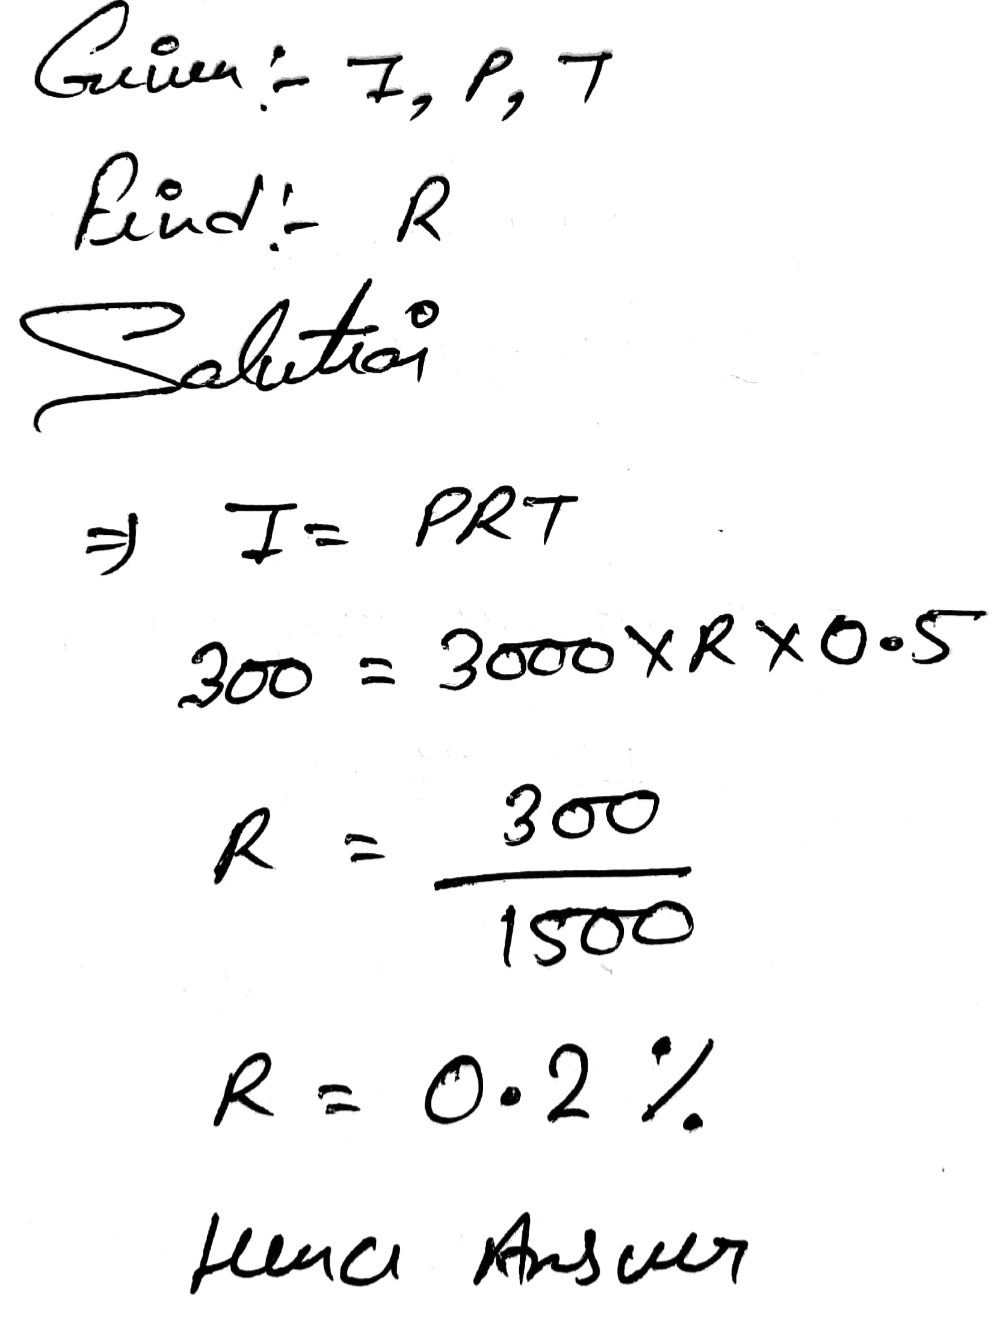 Given:- I, P, T
Find:- R
Solution
⇒ I = PRT
300 = 3000 × R × 0.5
R = 300
1500
R = 0.2 %
Hence Answer